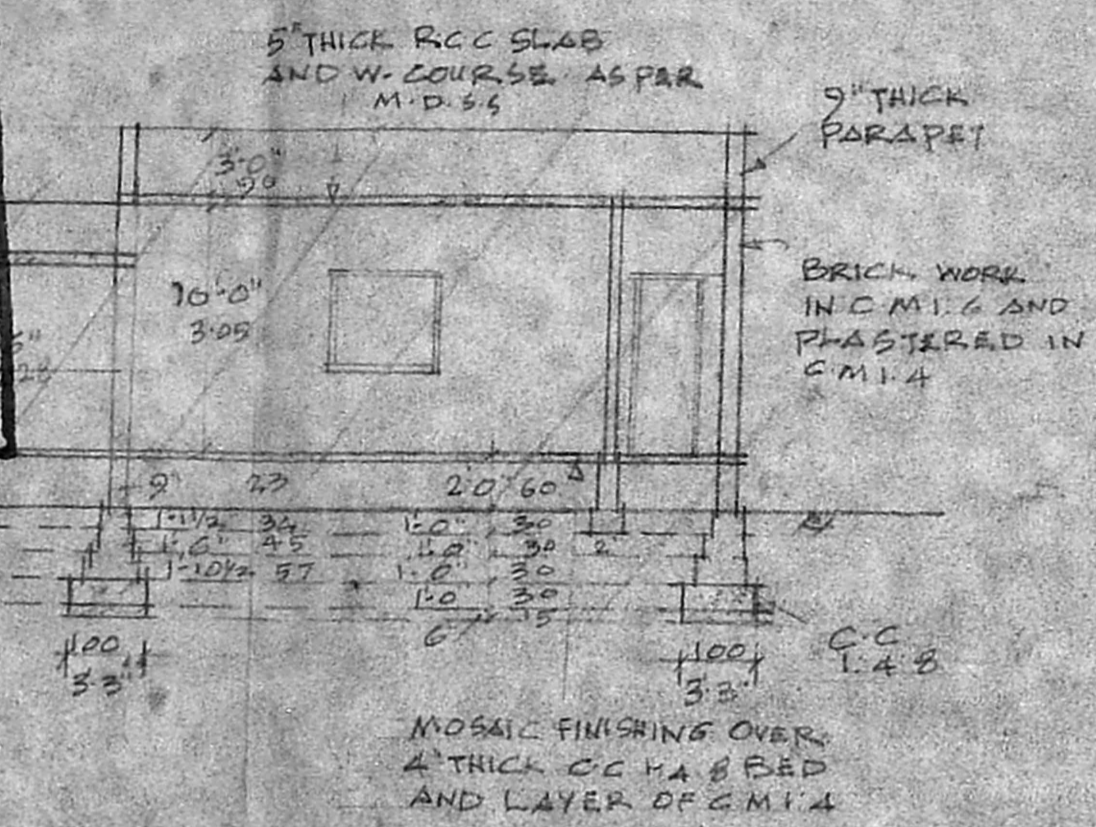 5" THICK R.C.C SLAB
AND W-COURSE AS PER
M.D.S.S
9" THICK
PARAPET
3'-0"
90
10'-0"
3.05
BRICK WORK
IN C.M 1.6 AND
PLASTERED IN
C.M 1.4
23
9" 23
2'0" 60
1'-1 1/2 34 1'-0" 30
1'-6" 45 1'-0" 30 2'
1'-10 1/2 57 1'-0" 30
1'-0" 30
6" 15
100
3'.3"
100
3'.3"
C.C
1:4:8
MOSAIC FINISHING OVER
4" THICK C.C 1:4:8 BED
AND LAYER OF C.M 1:4